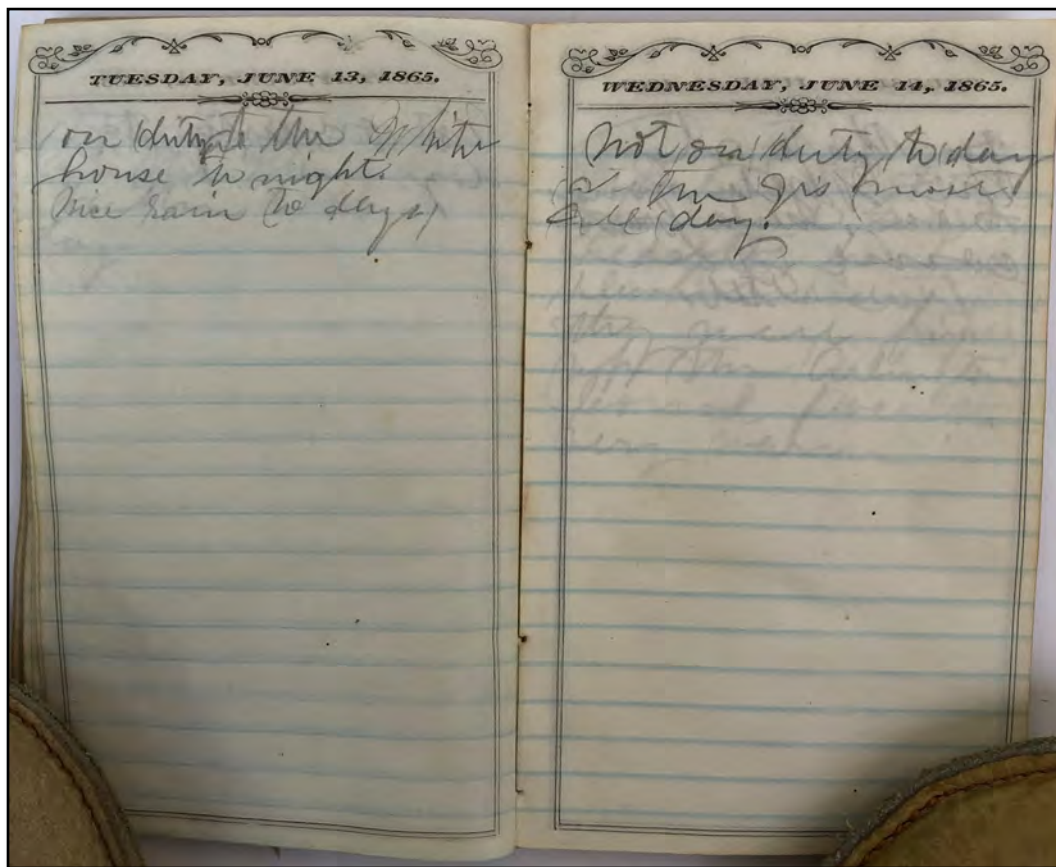 TUESDAY, JUNE 13, 1865.
on duty to the White
house to night.
Nice rain to day
WEDNESDAY, JUNE 14, 1865.
Not on duty to day
in the most
all day.